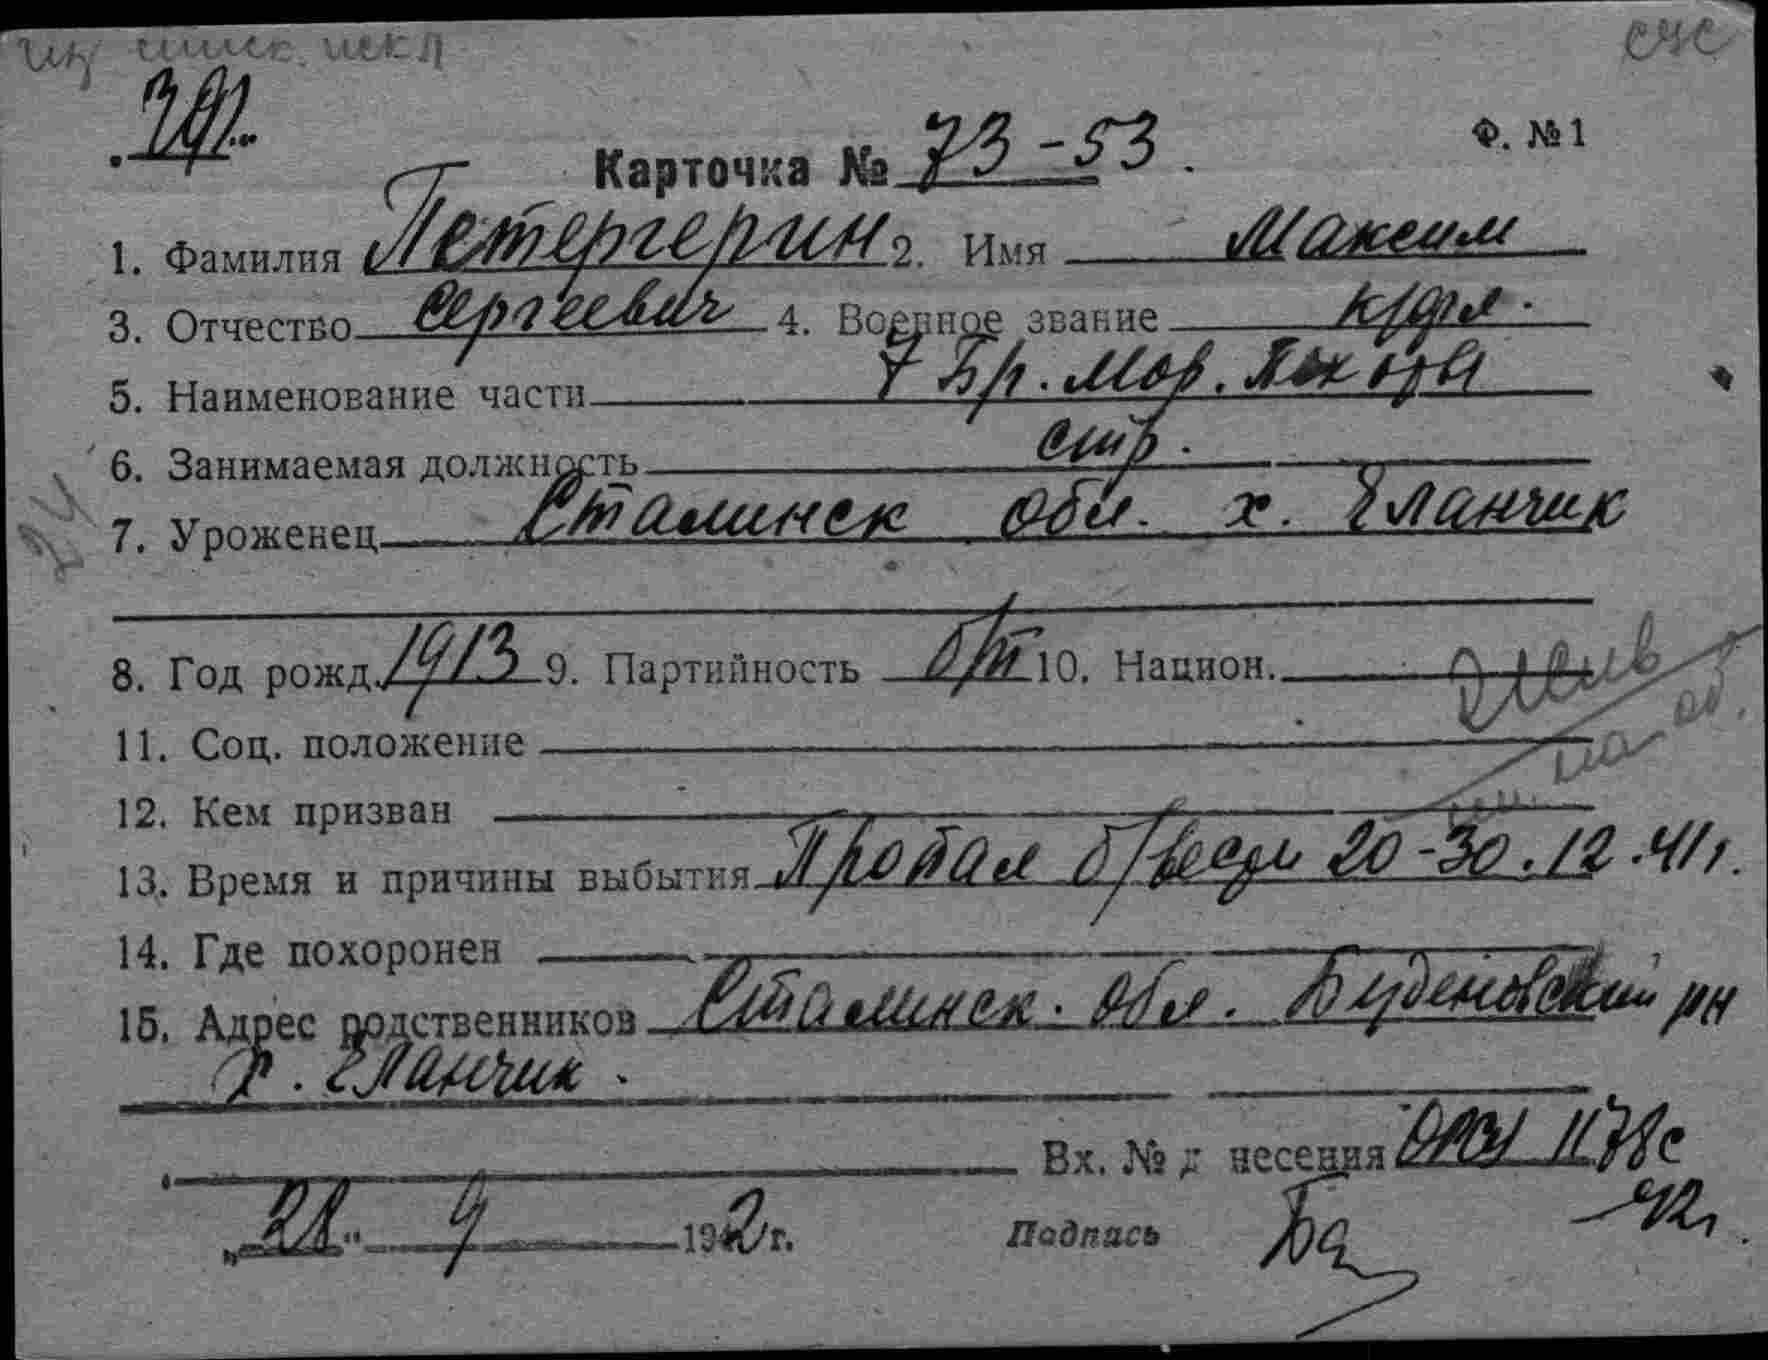 из списк. искл
сис
Карточка № 73-53. Ф. №1
1. Фамилия Петергерин 2. Имя Максим
3. Отчество Сергеевич 4. Военное звание к/фл.
5. Наименование части 7 Бр. Мор. Пехоты
6. Занимаемая должность стр.
24
7. Уроженец Сталинск обл. х. Еланчик
8. Год рожд. 1913 9. Партийность б/п 10. Национ.
Жив
11. Соц. положение
12. Кем призван
13. Время и причины выбытия Пропал б/вести 20-30.12.41г.
14. Где похоронен
15. Адрес родственников Сталинск. обл. Буденовский рн
х. Еланчик.
Вх. № д несения 1178с
"28" 9 1942 г. Подпись Ба 42г.